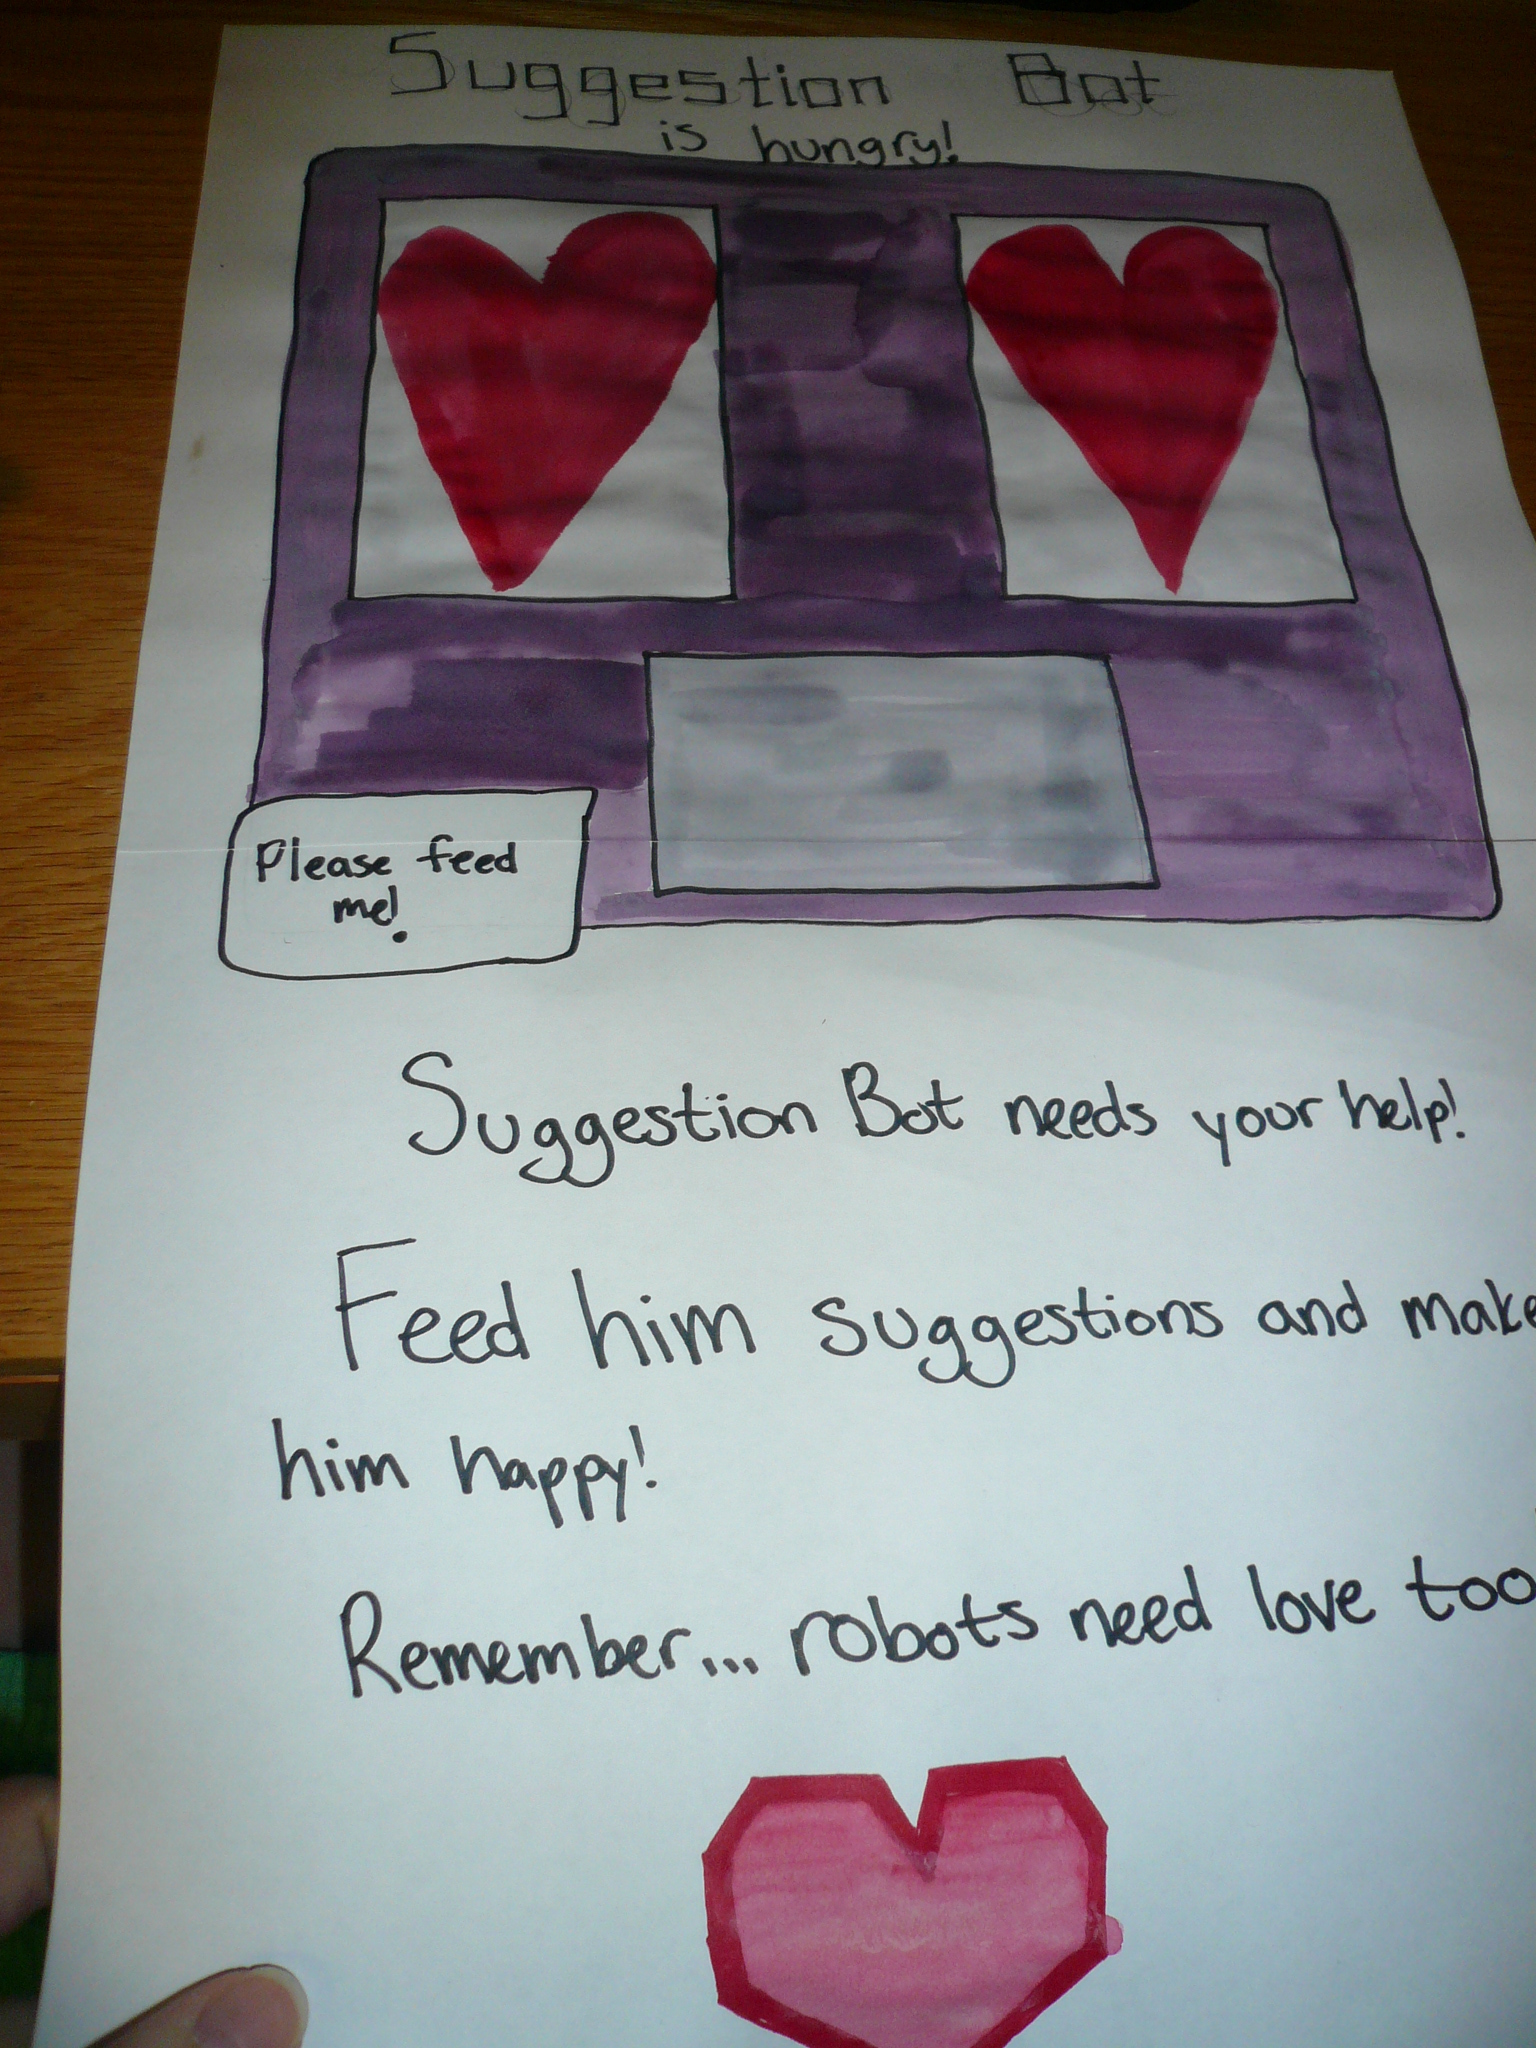 Suggestion Bot
is hungry!
Please feed
me!
Suggestion Bot needs your help!
Feed him suggestions and make
him happy!
Remember... robots need love too